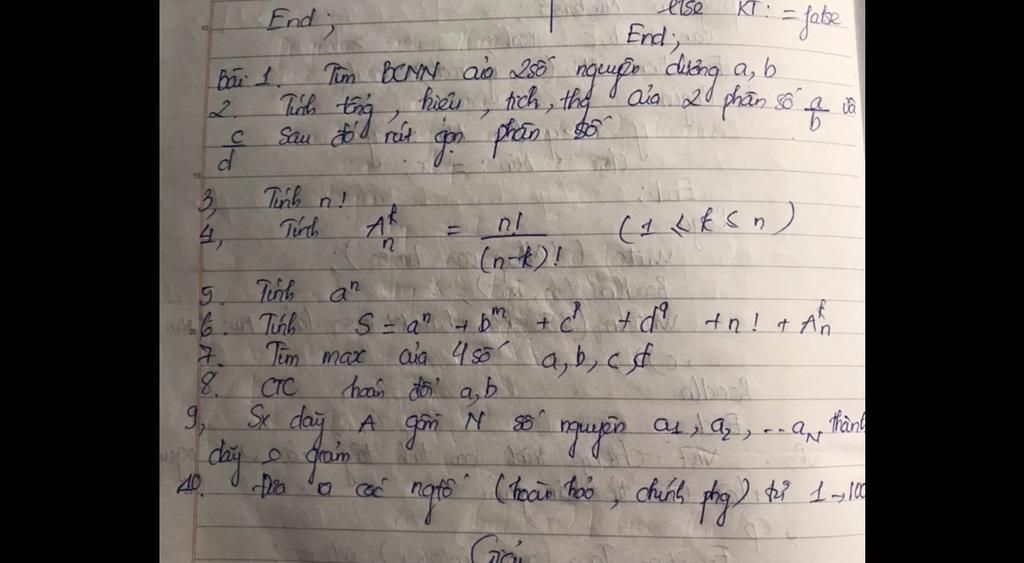 End;
else KT: = false
End;
Bài 1. Tìm BCNN của 2 số nguyên dương a, b
2. Tính tổng, hiệu, tích, thg của 2 phân số a/b và
c/d sau đó rút gọn phân số
3, Tính n!
4, Tính Aₙᵏ = n!/(n-k)! (1 ≤ k ≤ n)
5. Tính aⁿ
6. Tính S = aⁿ + bᵐ + cᵖ + d^q + n! + Aₙᵏ
7. Tìm max của 4 số a, b, c, d
8. CTC hoán đổi a, b
9, Sx dãy A gồm N số nguyên a1, a2, ...aN thành
dãy o giảm
10. Đưa ra các ngtố (hoàn hảo, chính phg) từ 1→100